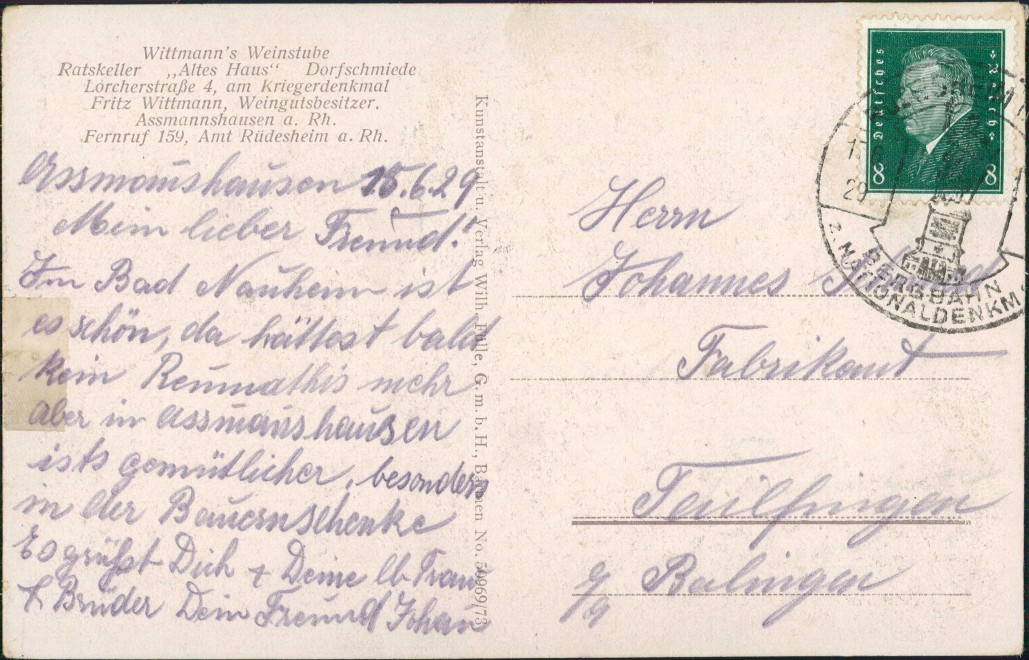 Wittmann's Weinstube
Ratskeller „Altes Haus“ Dorfschmiede
Lorcherstraße 4, am Kriegerdenkmal
Fritz Wittmann, Weingutsbesitzer.
Assmannshausen a. Rh.
Fernruf 159, Amt Rüdesheim a. Rh.
Assmaushausen 15.6.29
Mein lieber Freund!
Im Bad Nauheim ist
es schön, da hättest bald
kein Reumathis mehr
aber in Assmaushausen
ists gemütlicher, besonders
in der Bauernschenke
Es grüßt Dich + Deine lb Frau
+ Bruder Dein Freund Johan
Kunstanstalt u. Verlag Wilh. G. m. b. H., No.
Deutsches Reich
8 8
29
BERGBAHN
z. NATIONALDENKM
Herrn
Johannes
Fabrikant
Teilfingen
Balingen